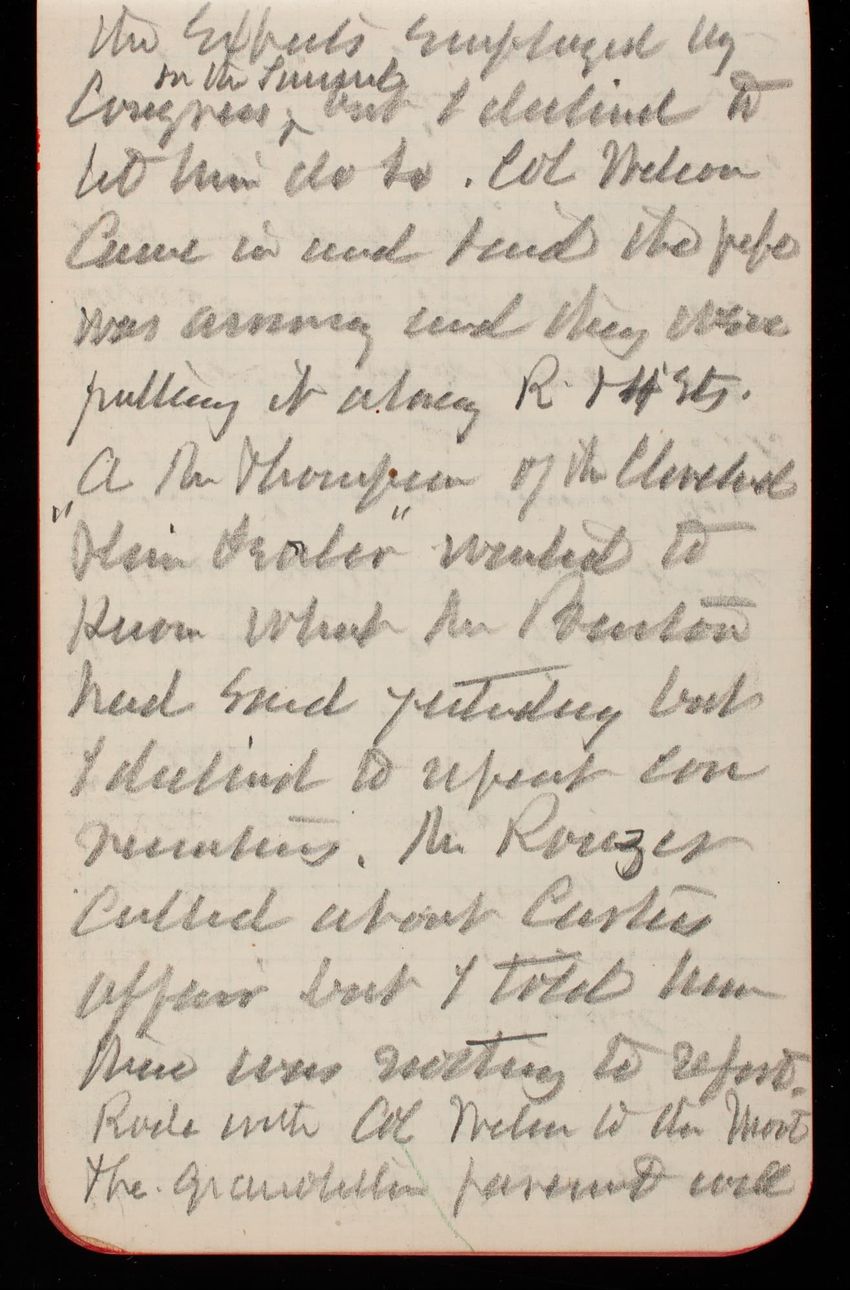 the Experts employed by
on the Tunnel
Congress, but I declined to
let him do so. Col Wilson
Came in and said the pipe
was arriving and they were
putting it along R. & 4" Sts.
A Mr Thompson of the Cleveland
"Plain Dealer" wanted to
Know what Mr Brenton
had said yesterday but
I declined to repeat con
versations. Mr Rouzer
Called about Casters
affair but I told him
there was nothing to report.
Rode with Col Wilson to the Mont
the. granolithic pavement will